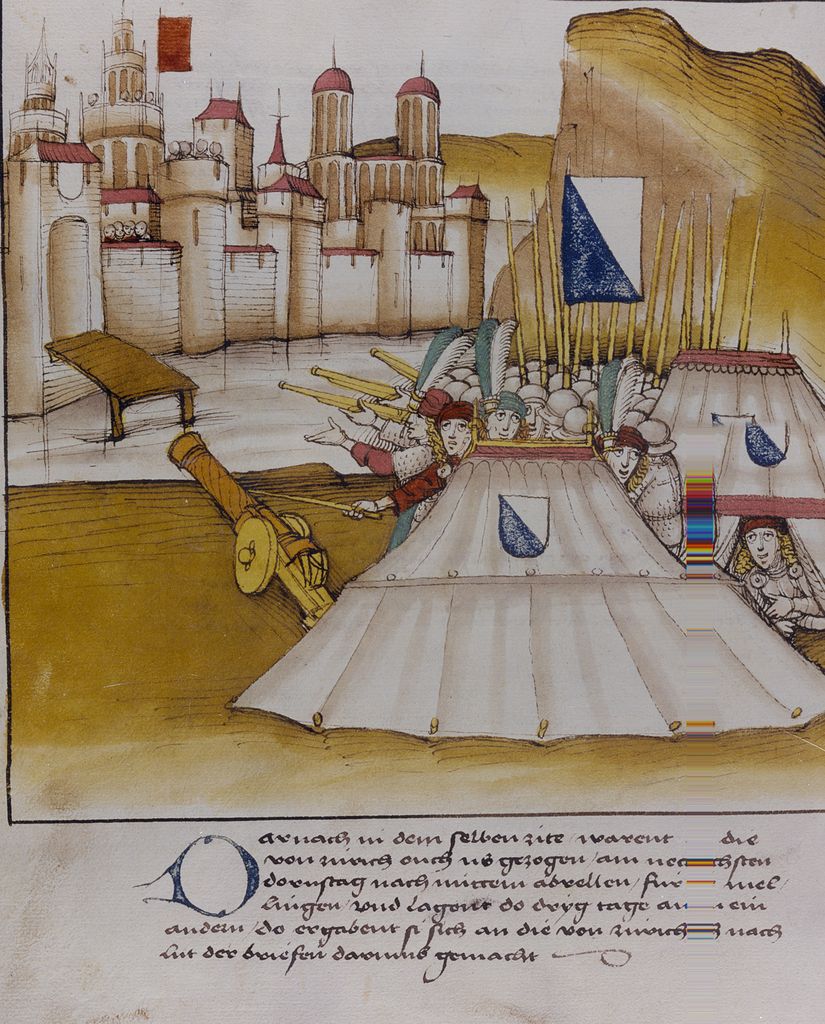 Darnach in dem selben zite / warent die
von zürich ouch us gezogen / am nechsten
dornstag nach mittem abrellen / für mel /
lingen / vnd lagent do dryg tage an ein
andern / do ergabent si sich an die von zürich nach
lut der briefen darumb gemacht